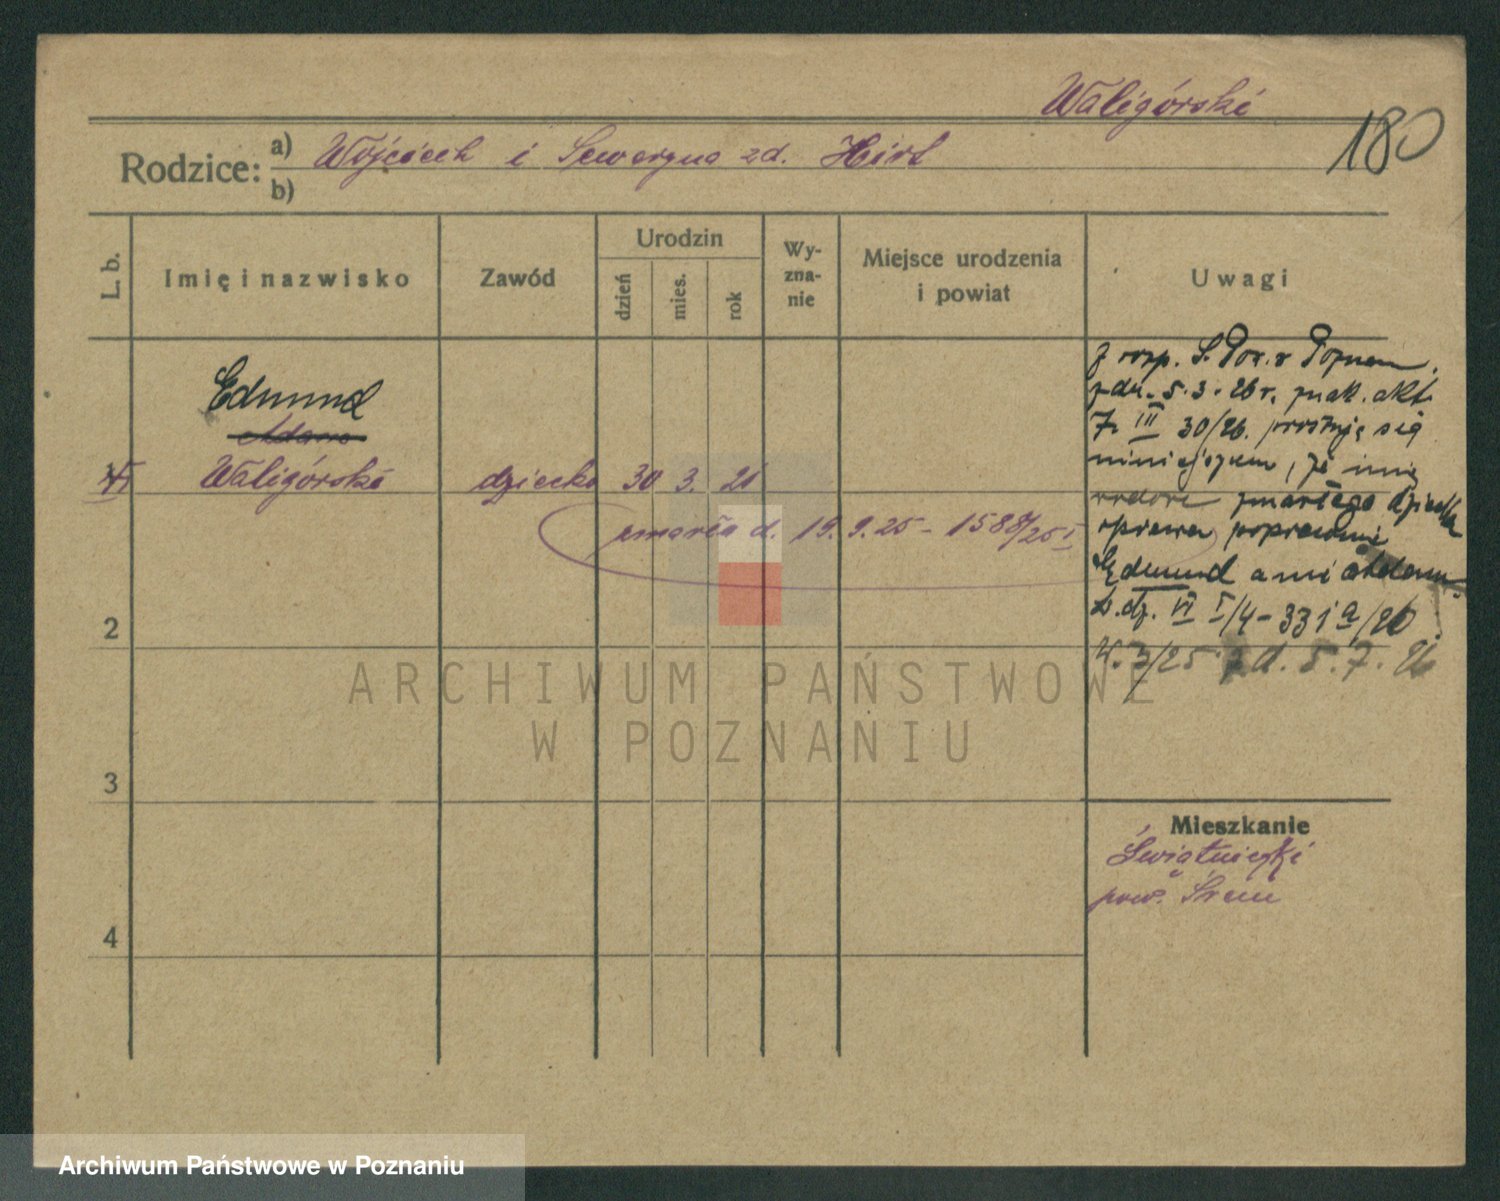 Waligórski
180
Rodzice: a) Wojciech i Seweryna zd. Hirt
b)
L. b.
Imię i nazwisko
Zawód
Urodzin
dzień
mies.
rok
Wy-
zna-
nie
Miejsce urodzenia
i powiat
Uwagi
Edmund
Adam
Waligórski dziecko 30 3. 21
zmarła d. 19.9.25 - 1588/25 I
Z rozp. S. Pow. Poznań
z dn. 5.3.26 r. znak. akt
7. III 30/26. prostuję się
niniejszem, że imię
zmarłego dziecka
Edmund a nie Adam
L. dz. VI I/4 - 331 a/26
z d. 5.7.26
2
3
4
Mieszkanie
Świątniczki
pow. Śrem
ARCHIWUM PAŃSTWOWE
W POZNANIU
Archiwum Państwowe w Poznaniu